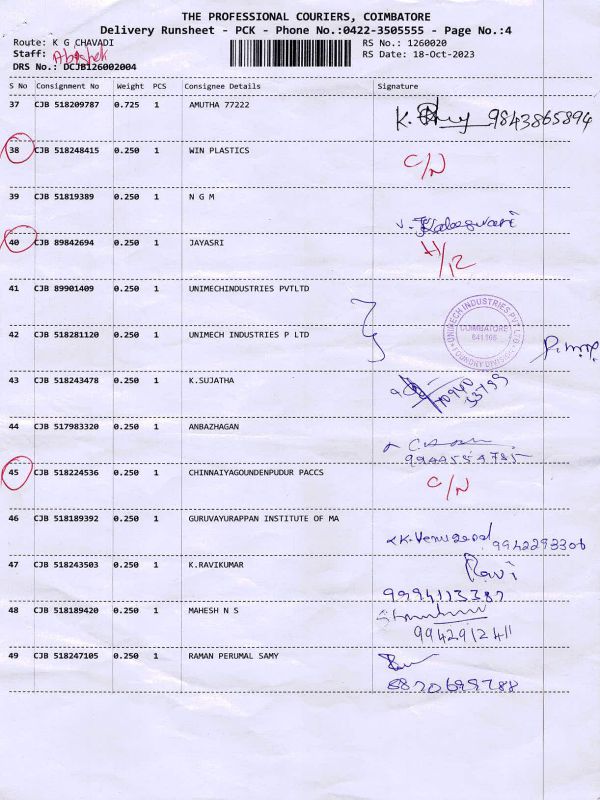 THE PROFESSIONAL COURIERS, COIMBATORE
Delivery Runsheet - PCK - Phone No.:0422-3505555 - Page No.:4
Route: K G CHAVADI
RS No.: 1260020
Staff: Abishek
RS Date: 18-Oct-2023
DRS No.: DCJB126002004
S No Consignment No Weight PCS Consignee Details Signature
37 CJB 518209787 0.725 1 AMUTHA 77222
K. 9843865894
38 CJB 518248415 0.250 1 WIN PLASTICS
C/N
39 CJB 51819389 0.250 1 N G M
40 CJB 89842694 0.250 1 JAYASRI
41 CJB 89901409 0.250 1 UNIMECHINDUSTRIES PVTLTD
UNIMECH INDUSTRIES PVT LTD
COIMBATORE
FOUNDRY DIVISION
42 CJB 518281120 0.250 1 UNIMECH INDUSTRIES P LTD
43 CJB 518243478 0.250 1 K.SUJATHA
44 CJB 517983320 0.250 1 ANBAZHAGAN
45 CJB 518224536 0.250 1 CHINNAIYAGOUNDENPUDUR PACCS
C/N
46 CJB 518189392 0.250 1 GURUVAYURAPPAN INSTITUTE OF MA
9942293306
47 CJB 518243503 0.250 1 K.RAVIKUMAR
Ravi
9994113387
48 CJB 518189420 0.250 1 MAHESH N S
9942912411
49 CJB 518247105 0.250 1 RAMAN PERUMAL SAMY
8870695788